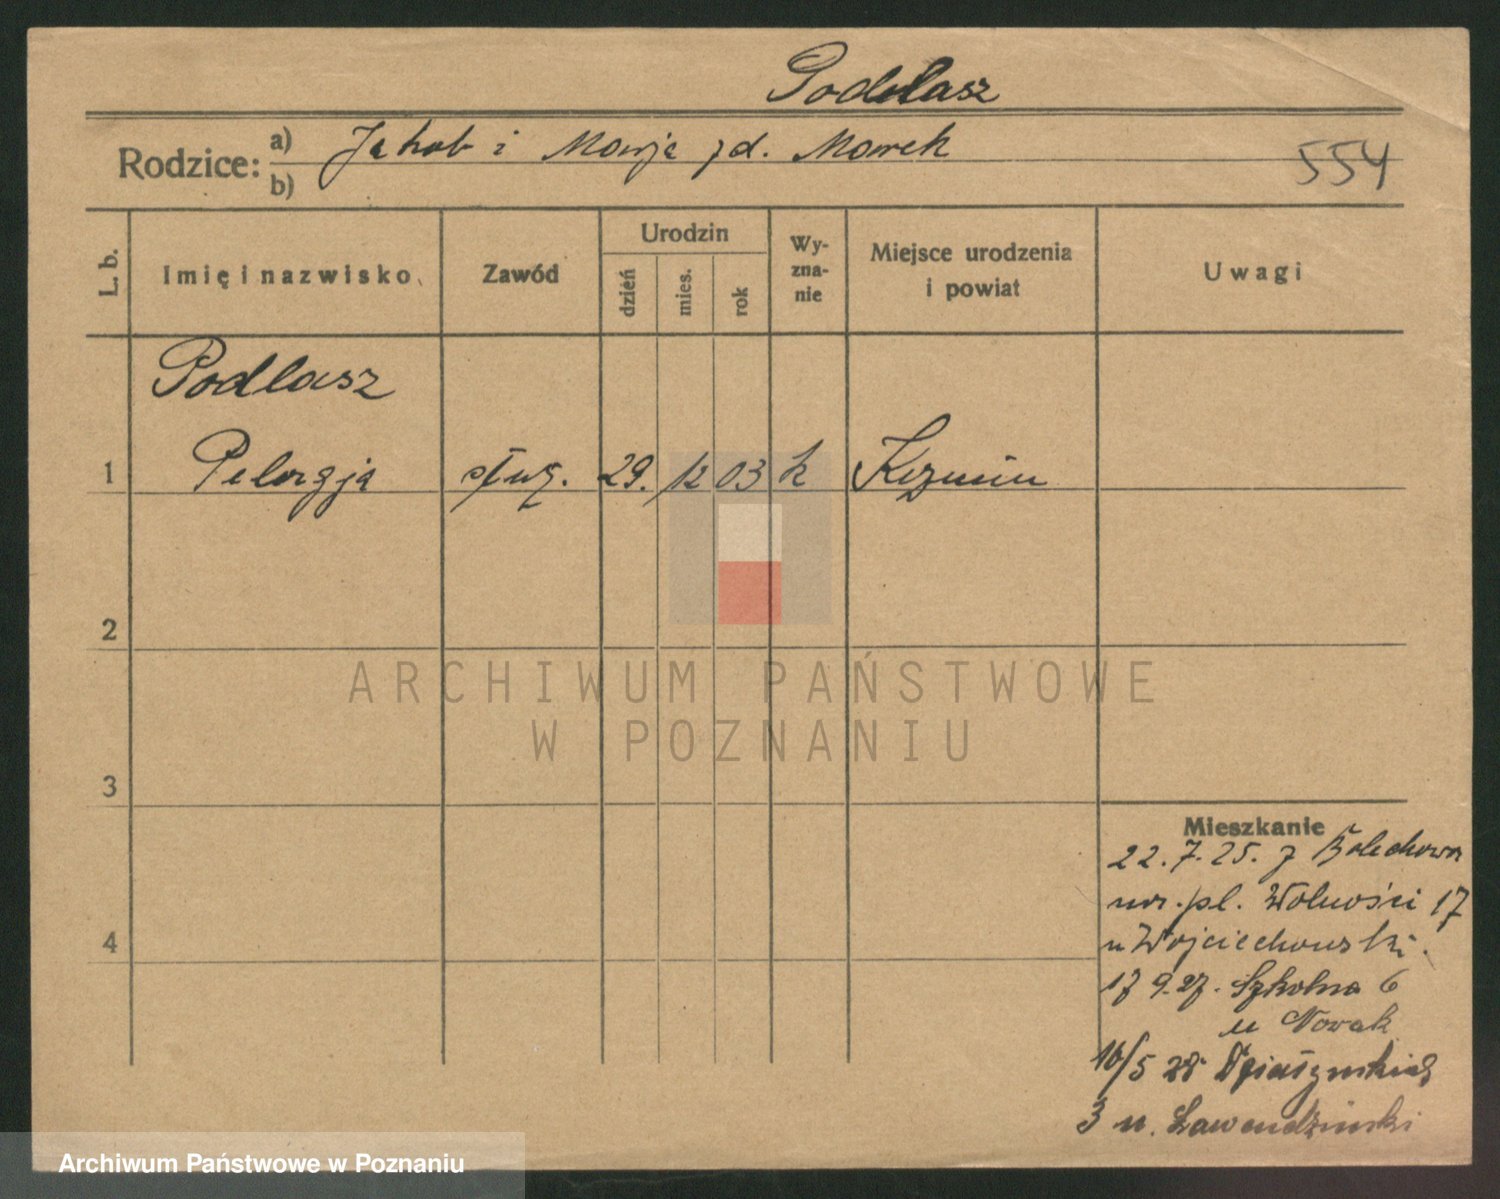 Podelasz
Rodzice: a) Jakob i Marja zd. Marek
b)
554
L. b. Imię i nazwisko Zawód Urodzin dzień mies. rok Wy-zna-nie Miejsce urodzenia i powiat Uwagi
Podlasz
1 Pelagja służ. 29. 12 03 k
2
3
4
Mieszkanie
22.7.25. z Bolechowa
pl. Wolności 17
u Wojciechowski.
17 9.27. Szkolna 6
u Nowak
16/5 28 Działyńskich
3 u. Lawendziński
ARCHIWUM PAŃSTWOWE
W POZNANIU
Archiwum Państwowe w Poznaniu